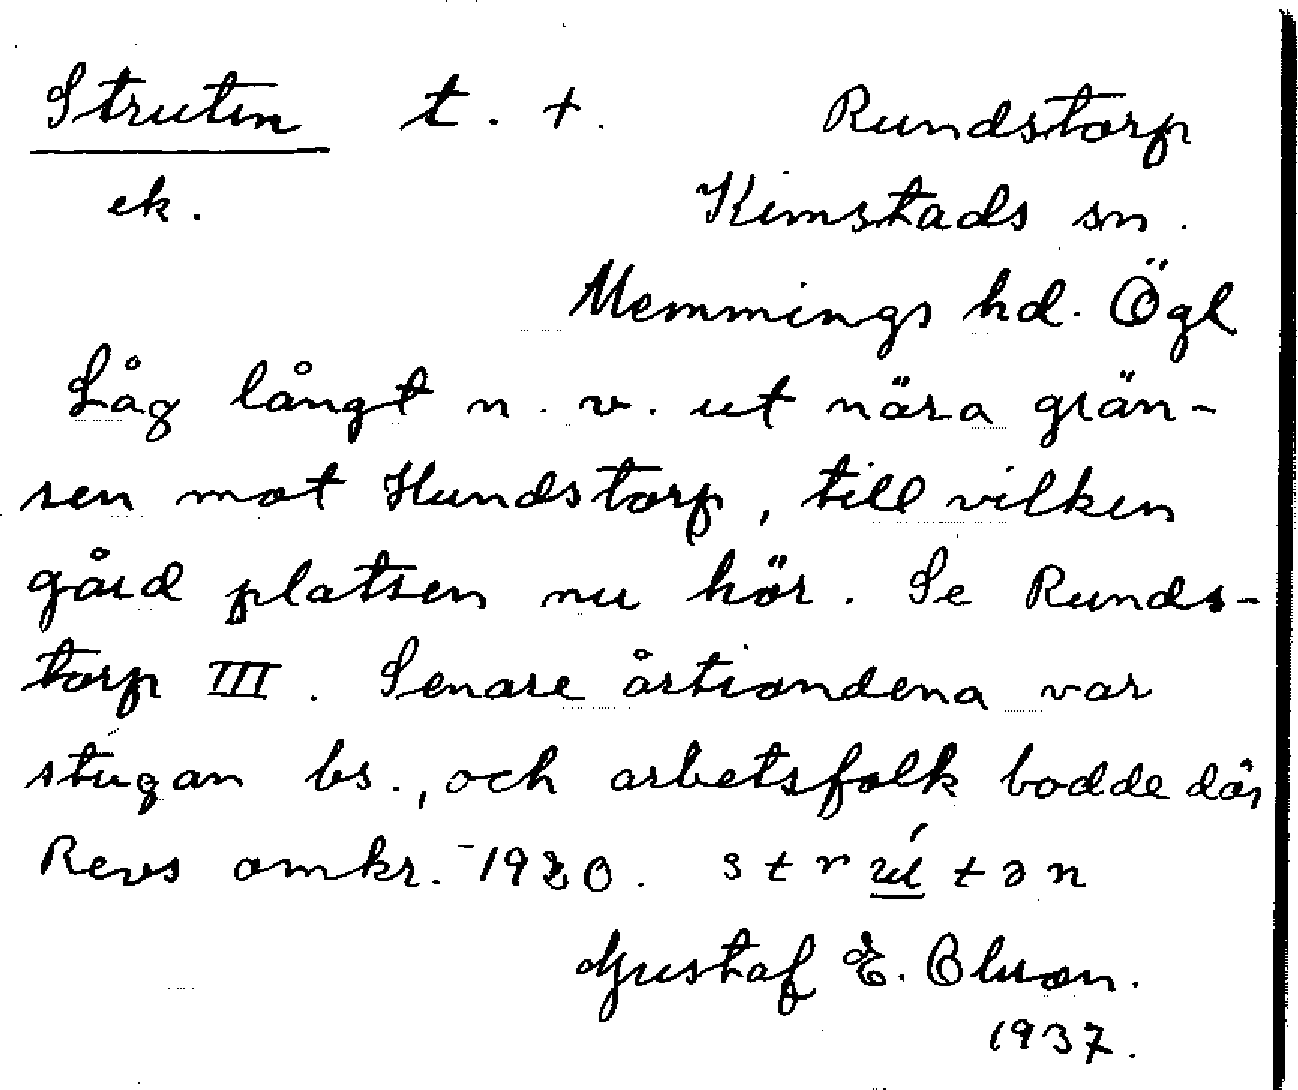 Struten t. +. Rundstorp
ek. Kimstads sn.
Memmings hd. Ögl
Låg långt n. v. ut nära grän-
sen mot Hundstorp, till vilken
gård platsen nu hör. Se Runds-
torp III. Senare årtiondena var
stugan bs., och arbetsfolk bodde där
Revs omkr. 1920. strútən
Gustaf E. Olsson.
1937.